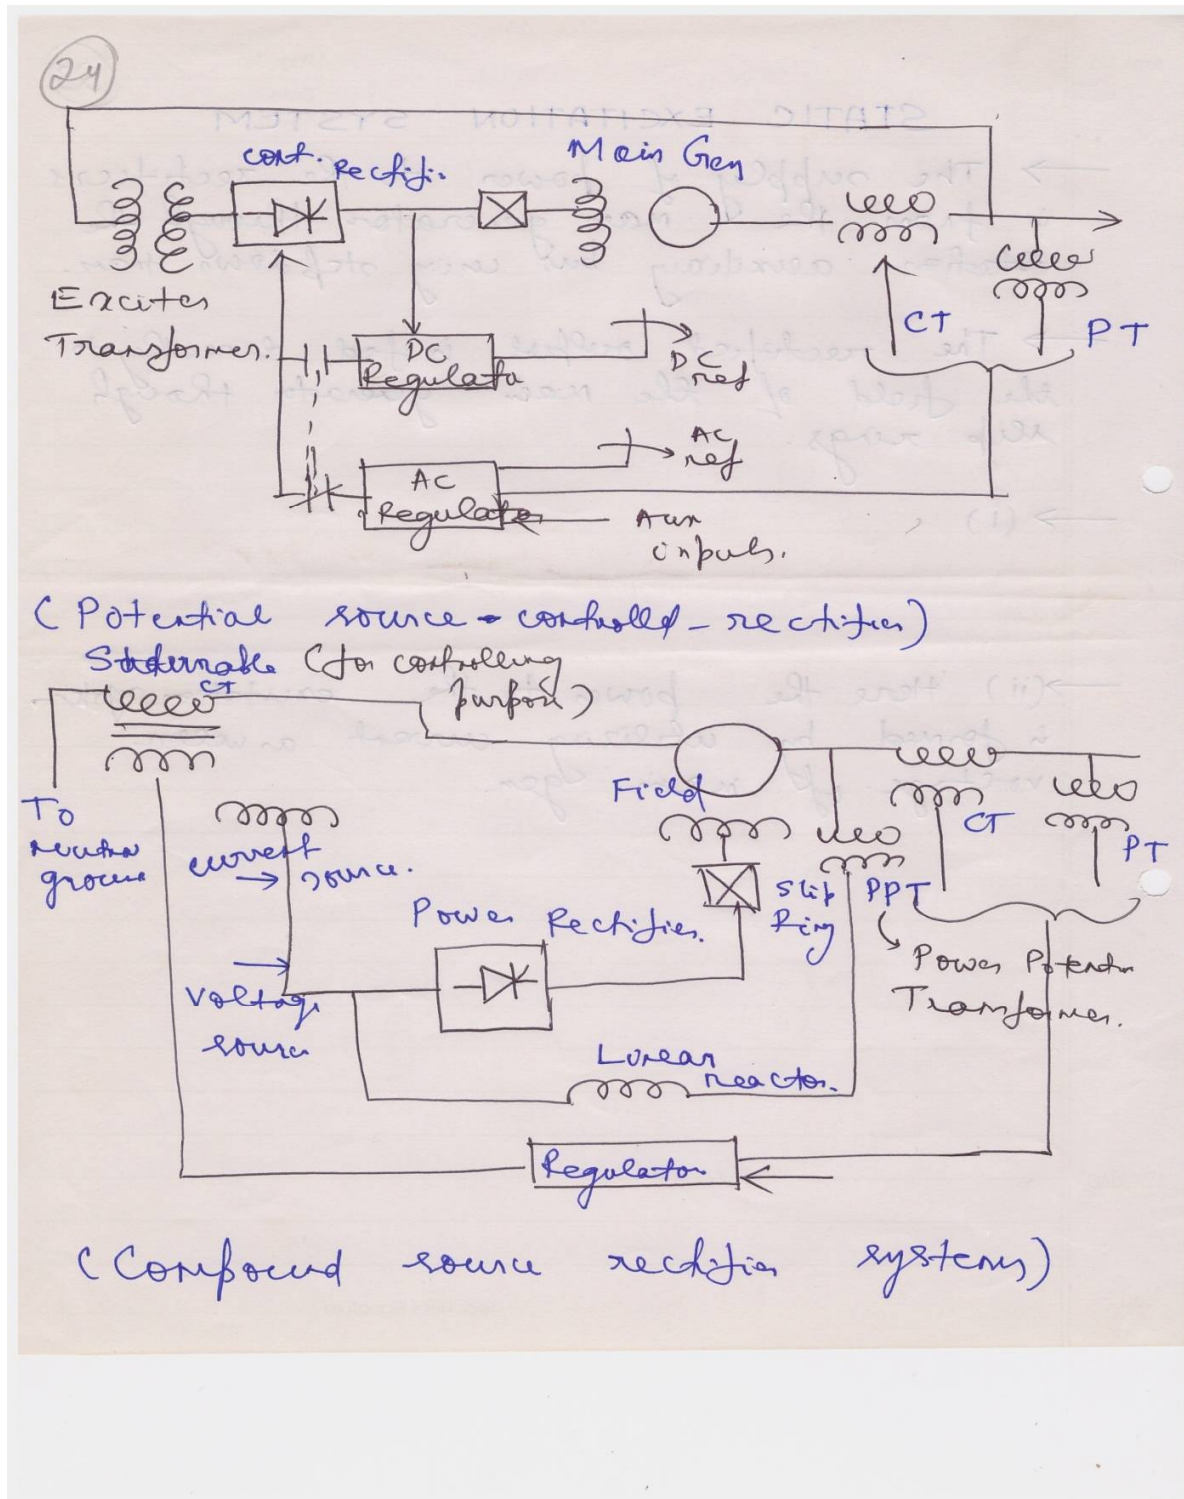 24
cont. Rectifi.
Main Gen
Exciter
Transformer.
CT
PT
DC
Regulato
DC
ref
AC
Regulator
AC
ref
Aux
inputs.
(Potential source - controlled - rectifier)
(for controlling
purpose)
CT
To
neutral
ground
current
source.
Voltage
source
Power Rectifier.
Field
Slip
Ring
PPT
CT
PT
Power Potential
Transformer.
Linear
reactor.
Regulator
(Compound source rectifier systems)